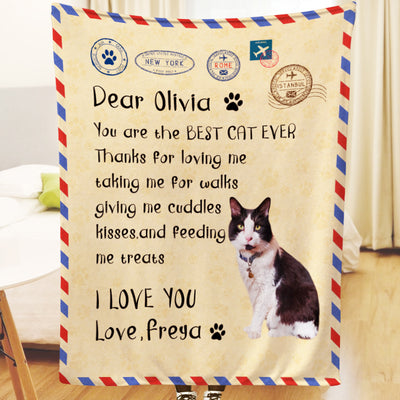 NEW YORK
ROME
ISTANBUL
Dear Olivia
You are the BEST CAT EVER
Thanks for loving me
taking me for walks
giving me cuddles
kisses.and feeding
me treats
I LOVE YOU
Love,Freya